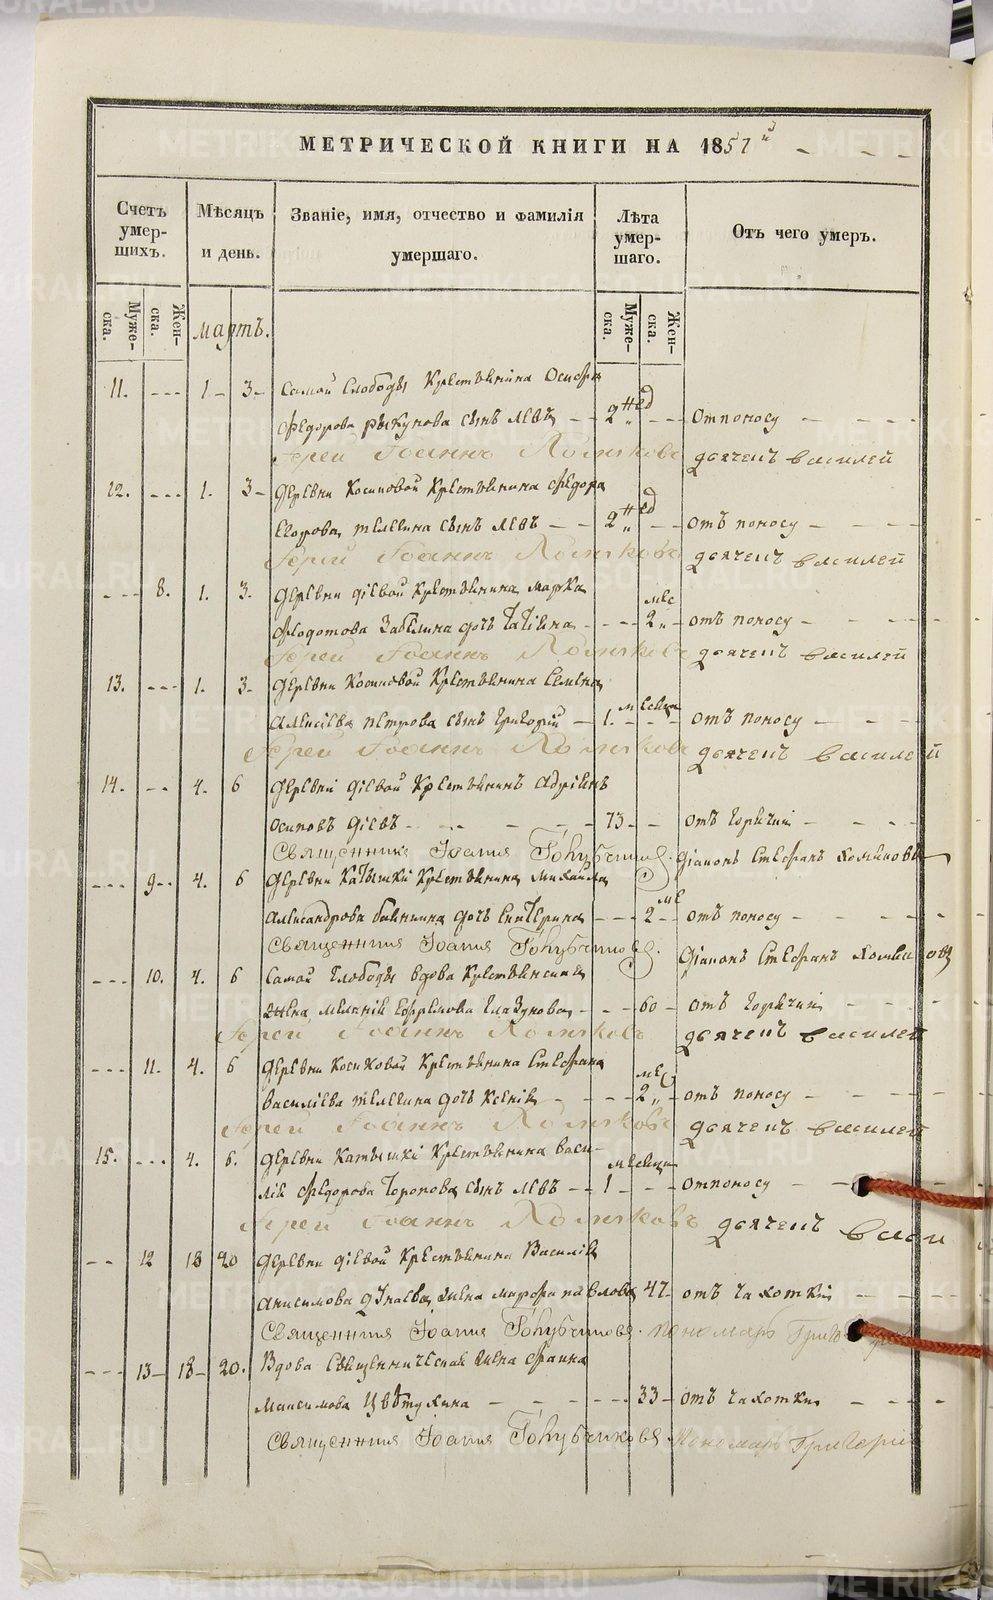 МЕТРИЧЕСКОЙ КНИГИ НА 1857й
Счетъ умерших. Мѣсяцъ и день. Званіе, имя, отчество и фамилія умершаго. Лѣта умершаго. Отъ чего умеръ.
Мужеска. Женска. Мужеска. Женска.
мартъ.
11. 1 3 Самой Слободы Крестьянина Осипа
Федорова сынъ Левъ 2 нед Отпоносу
Іерей Іоаннъ Холмяковъ дьячецъ василей
12. 1. 3 деревни Косиковой Крестьянина Федора
Егорова телегина сынъ левъ 2 нед отъ поносу
Іерей Іоаннъ Холмяковъ дьячецъ василей
8. 1. 3. деревни діевой Крестьянина марка
Федотова Забѣлина дочь Татіана 2 мес отъ поносу
Іерей Іоаннъ Холмяковъ дьячецъ василей
13. 1. 3 деревни Косиковой Крестьянина Семена
Алексіева петрова сынъ григорій 1. месеца отъ поносу
Іерей Іоаннъ Холмяковъ дьячецъ василей
14. 4. 6 деревни діевой Крестьянинъ Адріанъ
Осиповъ діевъ 73 отъ горячки
Священникъ Іоаннъ Голубчиковъ. діаконъ Стефанъ Хомяковъ
9 4. 6 деревни Катышки Крестьянина михаила
Александрова дочь Екатерина 2 ме отъ поносу
Священникъ Іоаннъ Голубчиковъ. діаконъ Стефанъ Хомяковъ
10. 4. 6 Самой Слободы вдова Крестьянская
жена меланія Ефремова Глазунова 60 отъ горячки
Іерей Іоаннъ Холмяковъ дьячецъ василей
11. 4. 6 деревни Косиковой Крестьянина Стефана
василіева телегина дочь Ксенія 2 мес отъ поносу
Іерей Іоаннъ Холмяковъ дьячецъ василей
15. 4. 6. деревни Катышки Крестьянина васи-
лія Федорова Торопова сынъ левъ 1 месеца отпоносу
Іерей Іоаннъ Холмяковъ дьячецъ васи
12 18 20 деревни діевой Крестьянина Василія
Анисимова дунаева жена марфа павлова 47 отъ чахотки
Священникъ Іоаннъ Голубчиковъ. пономарь Григо
13 18 20. Вдова Священническая жена
максимова Цвѣтухина 33 отъ чахотки
Священникъ Іоаннъ Голубчиковъ Пономарь Григорій
METRIKI.GASO-URAL.RU